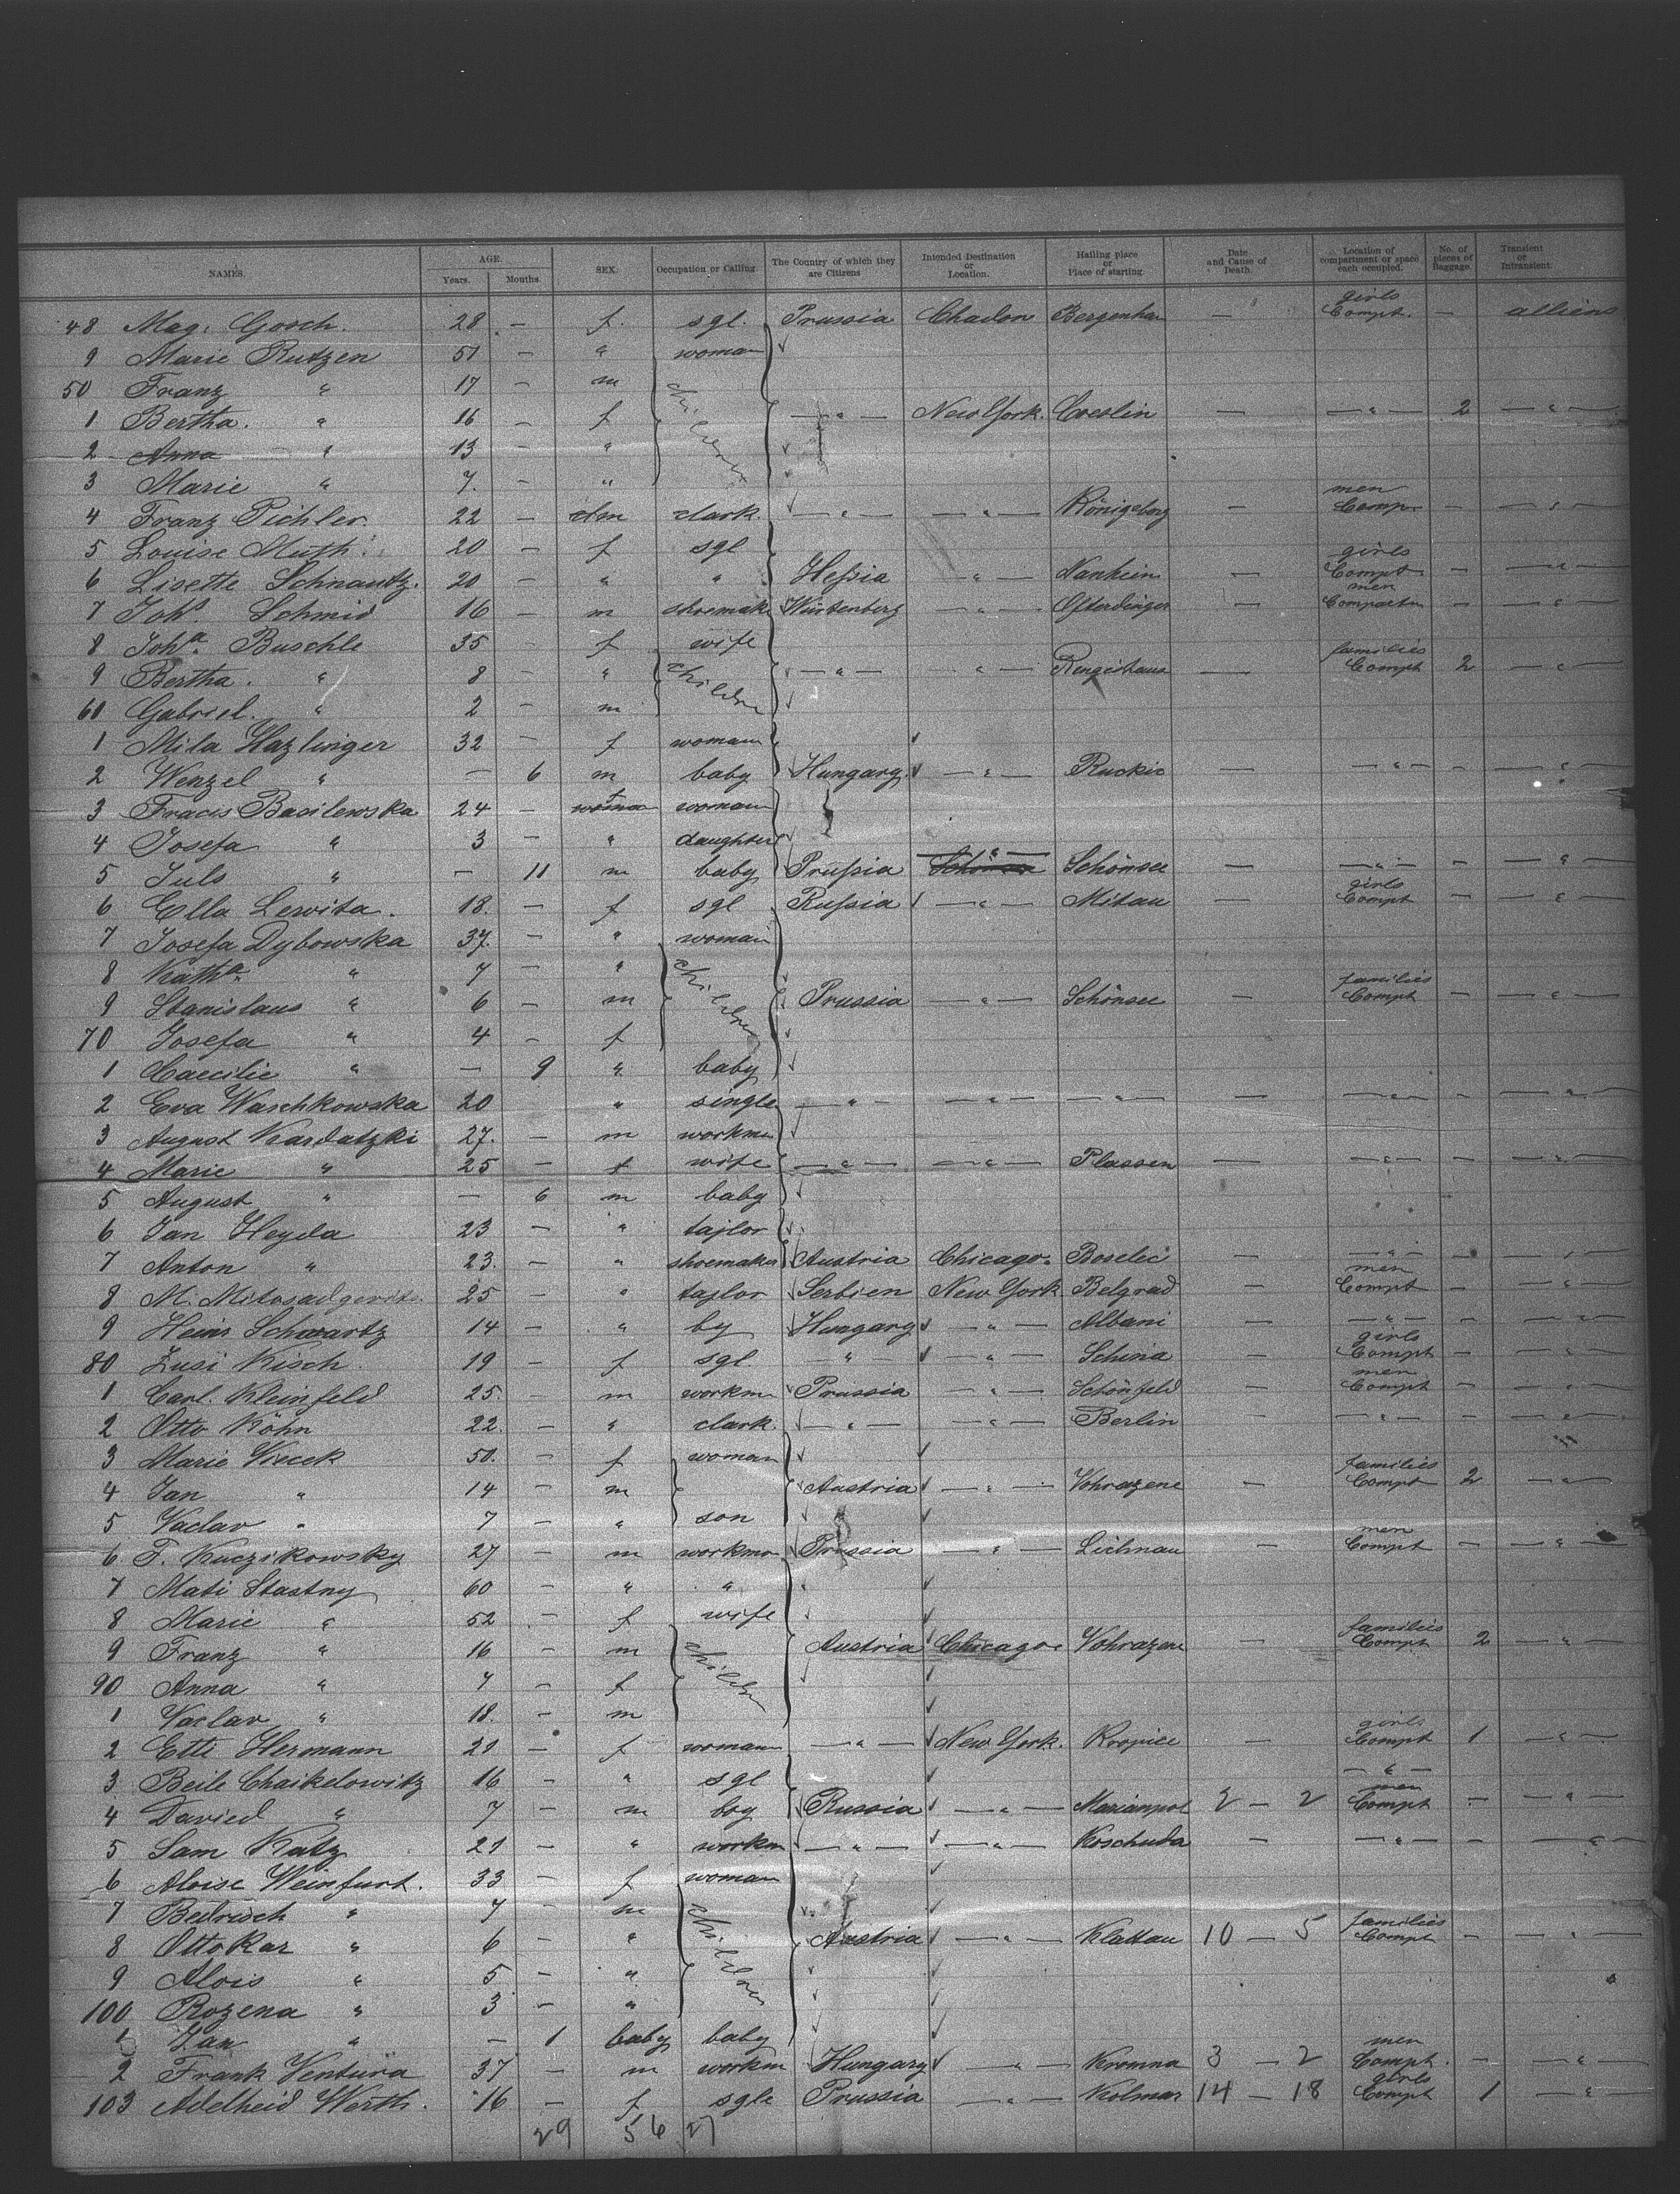 NAMES. AGE. Years. Months. SEX. Occupation or Calling. The Country of which they are Citizens Intended Destination or Location. Hailing place or Place of starting. Date and Cause of Death. Location of compartment or space each occupied. No. of pieces of Baggage. Transient or Intransient.
48 Mag. Gosch. 28 — f. sgl. Prussia Chadon Bergenhan — girls Compt. — alliens
9 Marie Rutzen 51 — " woman
50 Franz " 17 — m children
1 Bertha. " 16 — f — " — New York. Coeslin — — " — 2 — " —
2 Anna " 13 — "
3 Marie " 7. — "
4 Franz Pichler. 22 — m clark. — " — — " — Königsberg — men Comp. — — " —
5 Louise Muth. 20 — f sgl
6 Lisette Schnautz. 20 — " " Hessia — " — Nanheim — girls Compt — — " —
7 Joh.s Schmid 16 — m shoemak Würtenberg — " — Ofterdingen — men Compartm — — " —
8 Joh.a Buschle 35 — f wife
9 Bertha. " 8 — " children — " — " Rengishaus — families Compt 2 — " —
60 Gabriel. " 2 — m
1 Mila Hazlinger 32 — f woman
2 Wenzel " — 6 m baby Hungary. — " — Ruckic — — " — — — " —
3 Fracis Basilewska 24 — f woman
4 Josefa " 3 — " daughter
5 Juls " — 11 m baby Prussia — " — Schönsee — — " — — — " —
6 Ella Lewita. 18. — f sgl Russia — " — Mitau — girls Compt — — " —
7 Josefa Dybowska 37. — " woman
8 Kath.a " 7 — " children
9 Stanislaus " 6 — m Prussia — " — Schönsee — families Compt — — " —
70 Josefa " 4 — f
1 Caecilie " — 9 " baby
2 Eva Waschkowska 20 " single — " — — " — — " — — — " — — " —
3 August Kardatzki 27. — m workmn
4 Marie " 25 — f wife — " — — " — Plassen — — " — — — " —
5 August " — 6 m baby
6 Jan Heyda 23 — " tajlor
7 Anton " 23. — " shoemaker Austria Chicago. Boselec — — " — — — " —
8 M. 25 — " taylor Serbien New York Belgrad — men Compt — — " —
9 Heins Schwartz 14 — " by Hungary — " — Albani — — " — — — " —
80 Zusi Kisch. 19 — f sgl — " — — " — Schina — girls Compt — — " —
1 Carl. Kleinfeld 25. — m workm Prussia — " — Schönfeld — men Compt — — " —
2 Otto Köhn 22. — " clark. — " — — " — Berlin — — " — — — " —
3 Marie Vlecek 50. — f woman
4 Jan " 14 — m Austria — " — Vohrazene — families Compt 2 — " —
5 Vaclav " 7 — " son
6 F. Kuczikowsky 27 — m workmn Prussia — " — Lichnau — men Compt — — " —
7 Mati Stastny 60 — " "
8 Marie " 52 — f wife
9 Franz " 16 — m children Austria Chicago Vohrazene — families Compt 2 — " —
90 Anna " 7 — f
1 Vaclav " 18. — m
2 Etti Hermann 21 — f woman — " — New York. Kropice — girls Compt 1 — " —
3 Beile Chaikelowitz 16 — " sgl — " —
4 David " 7 — m boy Russia — " — Mariampol 2 — 2 men Compt — — " —
5 Sam Katz 21 — " workm — " — — " — Koschuda — — " — — — " —
6 Aloise Weinfurt. 33 — f woman
7 Bedrisch " 7 — m children
8 Ottokar " 6 — " Austria — " — Klattau 10 — 5 families Compt — — " —
9 Alois " 5 — "
100 Rozena " 3 — "
1 Jan " — 1 baby baby
2 Frank Ventura 37 — m workm Hungary — " — Kromna 3 — 2 men Compt. — — " —
103 Adelheid Werth. 16 — f sgle Prussia — " — Kolmar 14 — 18 girls Compt 1 — " —
29 56 27